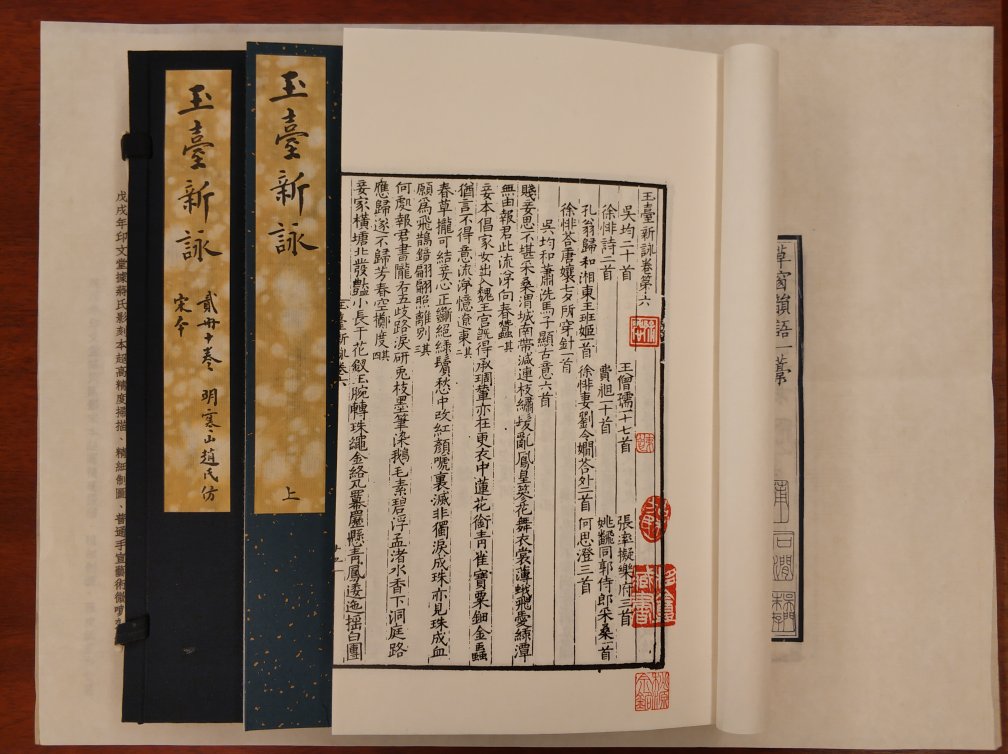 草窗韻語一藁
玉臺新詠卷第六
吳均二十首 王僧孺十七首 張率擬樂府三首
徐悱詩二首 費昶十首 姚飜同郭侍郎采桑一首
孔翁歸和湘東王班姬一首 徐悱妻劉令嫺荅外二首 何思澄三首
徐悱荅唐孃七夕所穿針一首
吳均和蕭洗馬子顯古意六首
賤妾思不堪采桑渭城南帶減連枝繡髮亂鳳皇簪花舞衣裳薄蛾飛愛綠潭
無由報君此流淚向春蠶其一
妾本倡家女出入魏王宮旣得承琱輦亦在更衣中蓮花銜靑雀寶粟鈿金蟲
猶言不得意流淚憶遼東其二
春草攏可結妾心正斷絕綠鬢愁中改紅顏啼裏滅非獨淚成珠亦見珠成血
願爲飛鵲鏡翩翩照離別其三
何處報君書隴右五歧路淚研兔枝墨筆染鵝毛素碧浮孟渚水香下洞庭路
應歸遂不歸芳春空擲度其四
妾家橫塘北發艷小長干花釵玉腕轉珠繩金絡丸羃䍥懸靑鳳逶迤搖白團
玉臺新詠
上
玉臺新詠
貳冊十卷 明寒山趙氏仿
宋本
戊戌年印文堂據蔣氏影刻本超高精度掃描、精細制圖、普通手宣藝術微噴